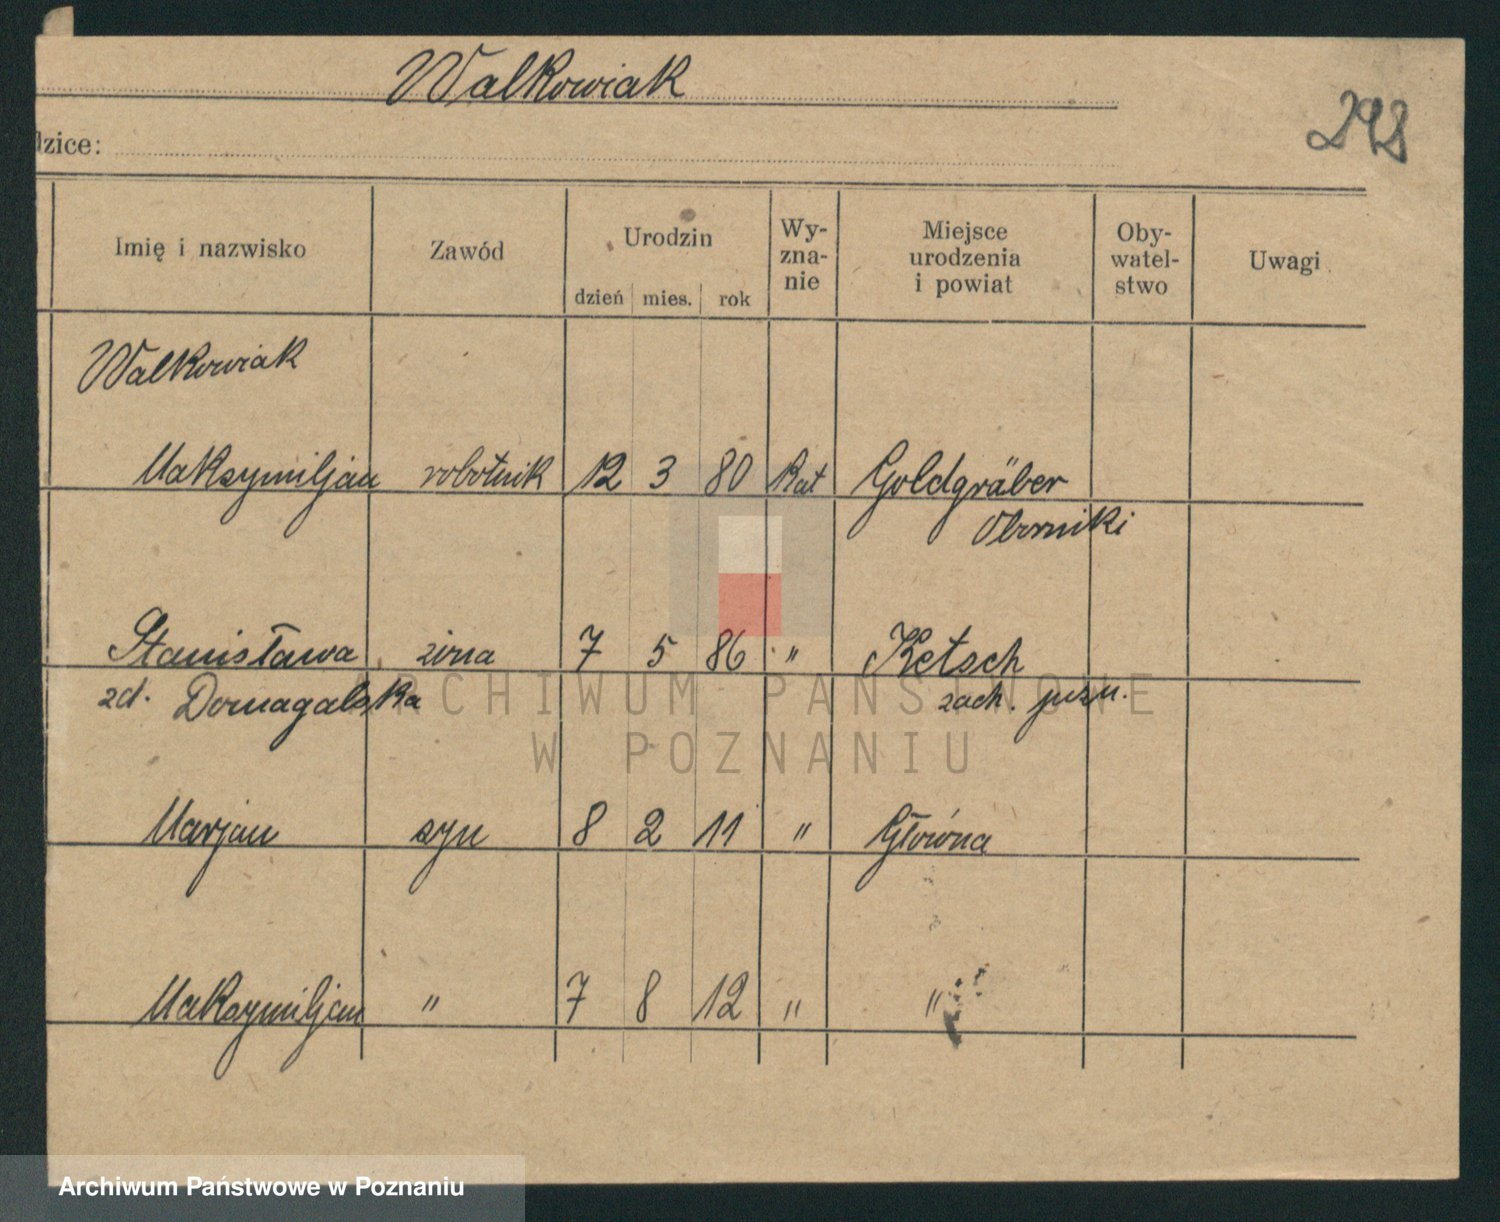 Walkowiak
298
dzice:
Imię i nazwisko Zawód Urodzin Wy-zna-nie Miejsce urodzenia i powiat Oby-watel-stwo Uwagi
dzień mies. rok
Walkowiak
Maksymiljan robotnik 12 3 80 Kat Goldgräber
Oborniki
Stanisława żona 7 5 86 " Ketsch
zd. Domagalska zach. pozn.
Marjan syn 8 2 11 " Główna
Maksymiljan " 7 8 12 " "
ARCHIWUM PAŃSTWOWE
W POZNANIU
Archiwum Państwowe w Poznaniu